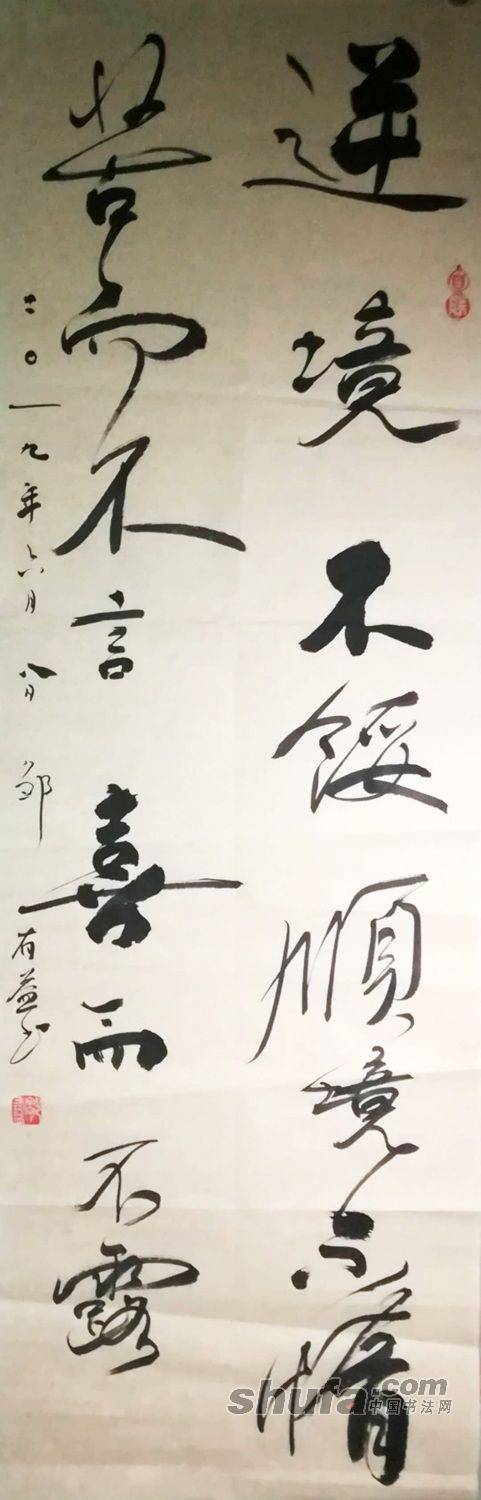 逆境不餒順境不惰
苦而不言喜而不露
二〇一九年六月八日 邹有益书
shufa.com
中国书法网